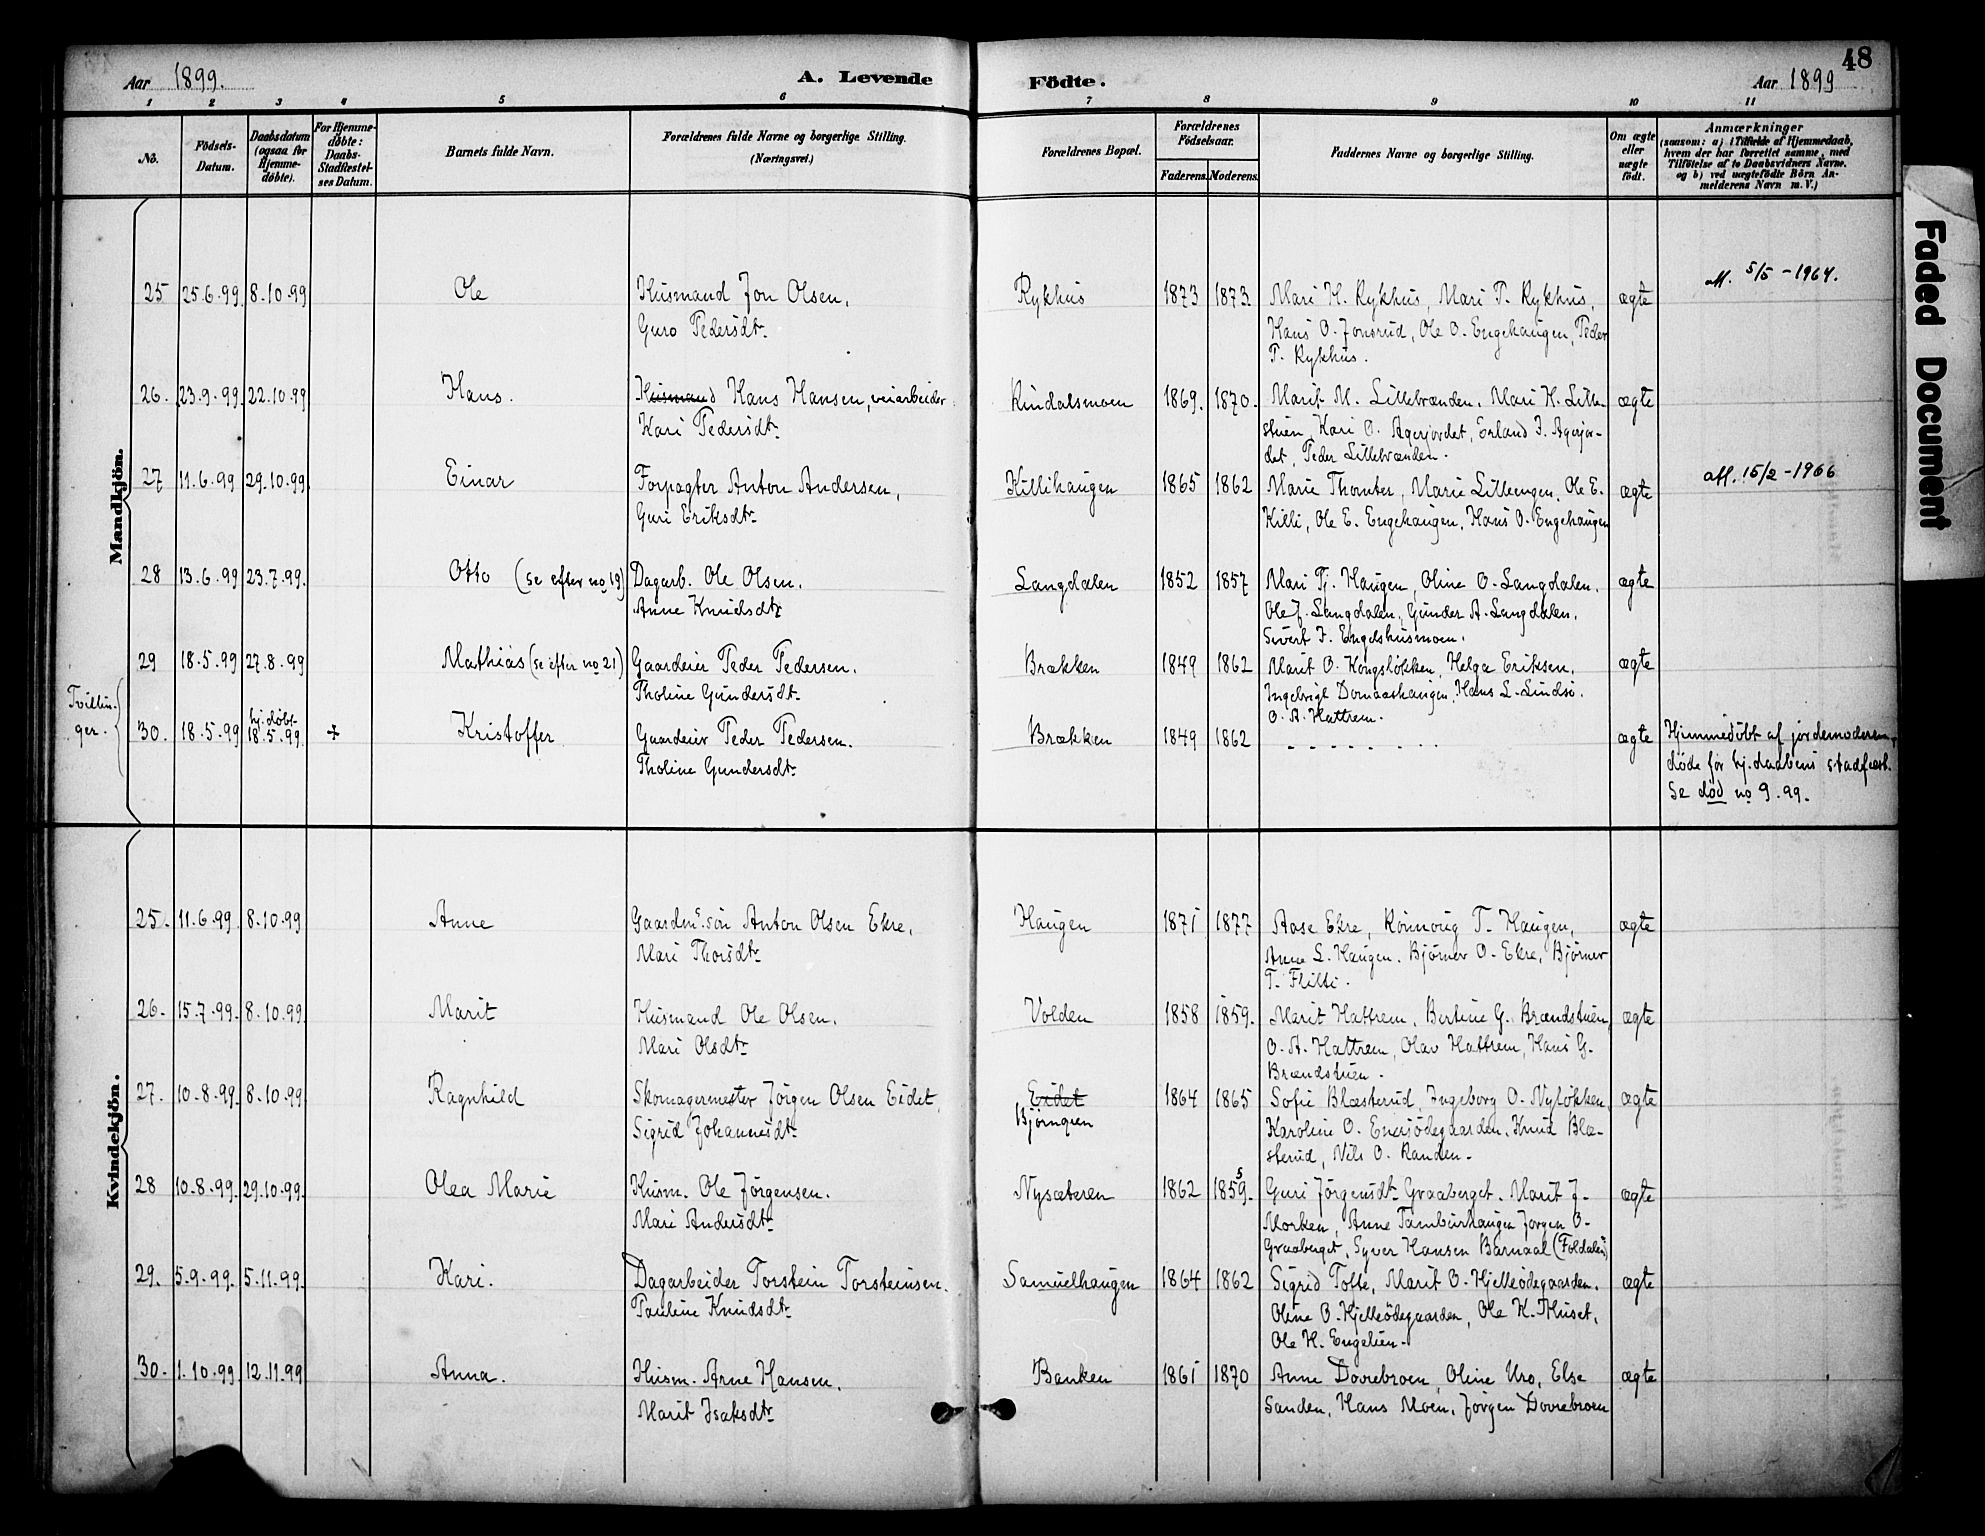 48
Aar 1899.
A. Levende Födte.
Aar 1899
1 2 3 4 5 6 7 8 9 10 11
No.
Födsels-Datum.
Daabsdatum (ogsaa for Hjemme-döbte).
For Hjemme-döbte: Daabs-Stadfæstel-ses Datum.
Barnets fulde Navn.
Forældrenes fulde Navne og borgerlige Stilling. (Næringsvei.)
Forældrenes Bopæl.
Forældrenes Födselsaar.
Faderens. Moderens.
Faddernes Navne og borgerlige Stilling.
Om ægte eller uægte födt.
Anmærkninger
(saasom: a) i Tilfælde af Hjemmedaab, hvem der har forrettet samme, med Tilföielse af to Daabsvidners Navne. og b) ved uægtefödte Börn An-melderens Navn m. V.)
Mandkjön.
25 25.6.99. 8.10.99 Ole Husmand Jon Olsen, Rykhus 1873 1873. Mari H. Rykhus, Mari P. Rykhus, ægte 5/5 - 1964.
Guro Pedersdtr. Hans O. Jonsrud, Ole O. Engehaugen, Peder
P. Rykhus.
26. 23.9.99. 22.10.99 Hans. Husmand Hans Hansen, veiarbeider Kindalsmoen 1869. 1870. Marit M. Lillebrænden, Mari H. Lille- ægte
Kari Pedersdtr. stuen, Kari O. Agerjordet, Erland J. Agerjor-
det, Peder Lillebrænden.
27 11.6.99 29.10.99. Einar Forpagter Anton Andersen, Killihaugen 1865 1862 Marie Thomter, Marie Lilleengen, Ole E. ægte att. 15/2 - 1966
Guri Eriksdtr. Killi, Ole E. Engehaugen, Hans O. Engehaugen
28 13.6.99 23.7.99. Otto (se efter no 19) Dagarb. Ole Olsen. Langdalen 1852 1857 Mari Pj. Haugen, Oline O. Langdalen. ægte
Anne Knudsdtr. Ole J. Langdalen, Gunder A. Langdalen.
Sivert J. Engelshusmoen.
29 18.5.99 27.8.99 Mathias (se efter no 21) Gaardeier Peder Pedersen. Brækken 1849 1862 Marit O. Kongsløkken, Helga Eriksen. ægte
Tholine Gundersdtr. Ingebrigt Domaashaugen, Hans L. Lindsö.
O. A. Hattrem.
Tvillin-
ger.
30. 18.5.99 hj. døbt 18.5.99 Kristoffer Gaardeier Peder Pedersen. Brækken 1849 1862 - - - - - - - - ægte Hjemmedøbt af jordemoderen,
Tholine Gundersdtr. døde før hj.daabens stadfæst.
Se død no 9.99.
Kvindekjön.
25. 11.6.99. 8.10.99 Anne Gaardmd. søn Anton Olsen Ekre, Haugen 1871 1877 Aase Ekre, Rönnoug T. Haugen, ægte
Mari Thorsdtr. Anne L. Haugen. Bjørner O. Ekre, Bjørner
T. Flitti.
26. 15.7.99. 8.10.99. Marit Husmand Ole Olsen. Volden 1858 1859. Marit Hattrem, Bertine G. Brændstuen, ægte
Mari Olsdtr. O. A. Hattrem, Olav Hattrem, Hans G.
Brændstuen.
27. 10.8.99. 8.10.99 Ragnhild Skomagermester Jörgen Olsen Eidet, Eidet 1864 1865 Sofie Blæsterud, Ingeborg O. Nyløkken, ægte
Sigrid Johannesdtr. Bjørngen Karoline O. Enersødegaarden, Knud Blæ-
sterud, Nils O. Randen.
28 10.8.99. 29.10.99. Olea Marie Husm. Ole Jörgensen. Nysæteren 1862 1859. 5 Guri Jörgensdtr. Graaberget. Marit J. ægte
Mari Andersdtr. Morken, Anne Tamburhaugen, Jørgen O.
Graaberget, Syver Hansen Barnaal (Foldalen)
29. 5.9.99. 5.11.99. Kari. Dagarbeider Torstein Torsteinsen. Samuelhaugen 1864 1862 Sigrid Tofte, Marit O. Hjelleödegaarden. ægte
Pauline Knudsdtr. Oline O. Hjelleödegaarden, Ole K. Huset,
Ole H. Engelien.
30. 1.10.99 12.11.99 Anna. Husm. Arne Hansen. Banken 1861 1870 Anne Dovrebroen, Oline Uro, Else ægte
Marit Isaksdtr. Sanden, Hans Moen, Jörgen Dovrebroen
Faded Document